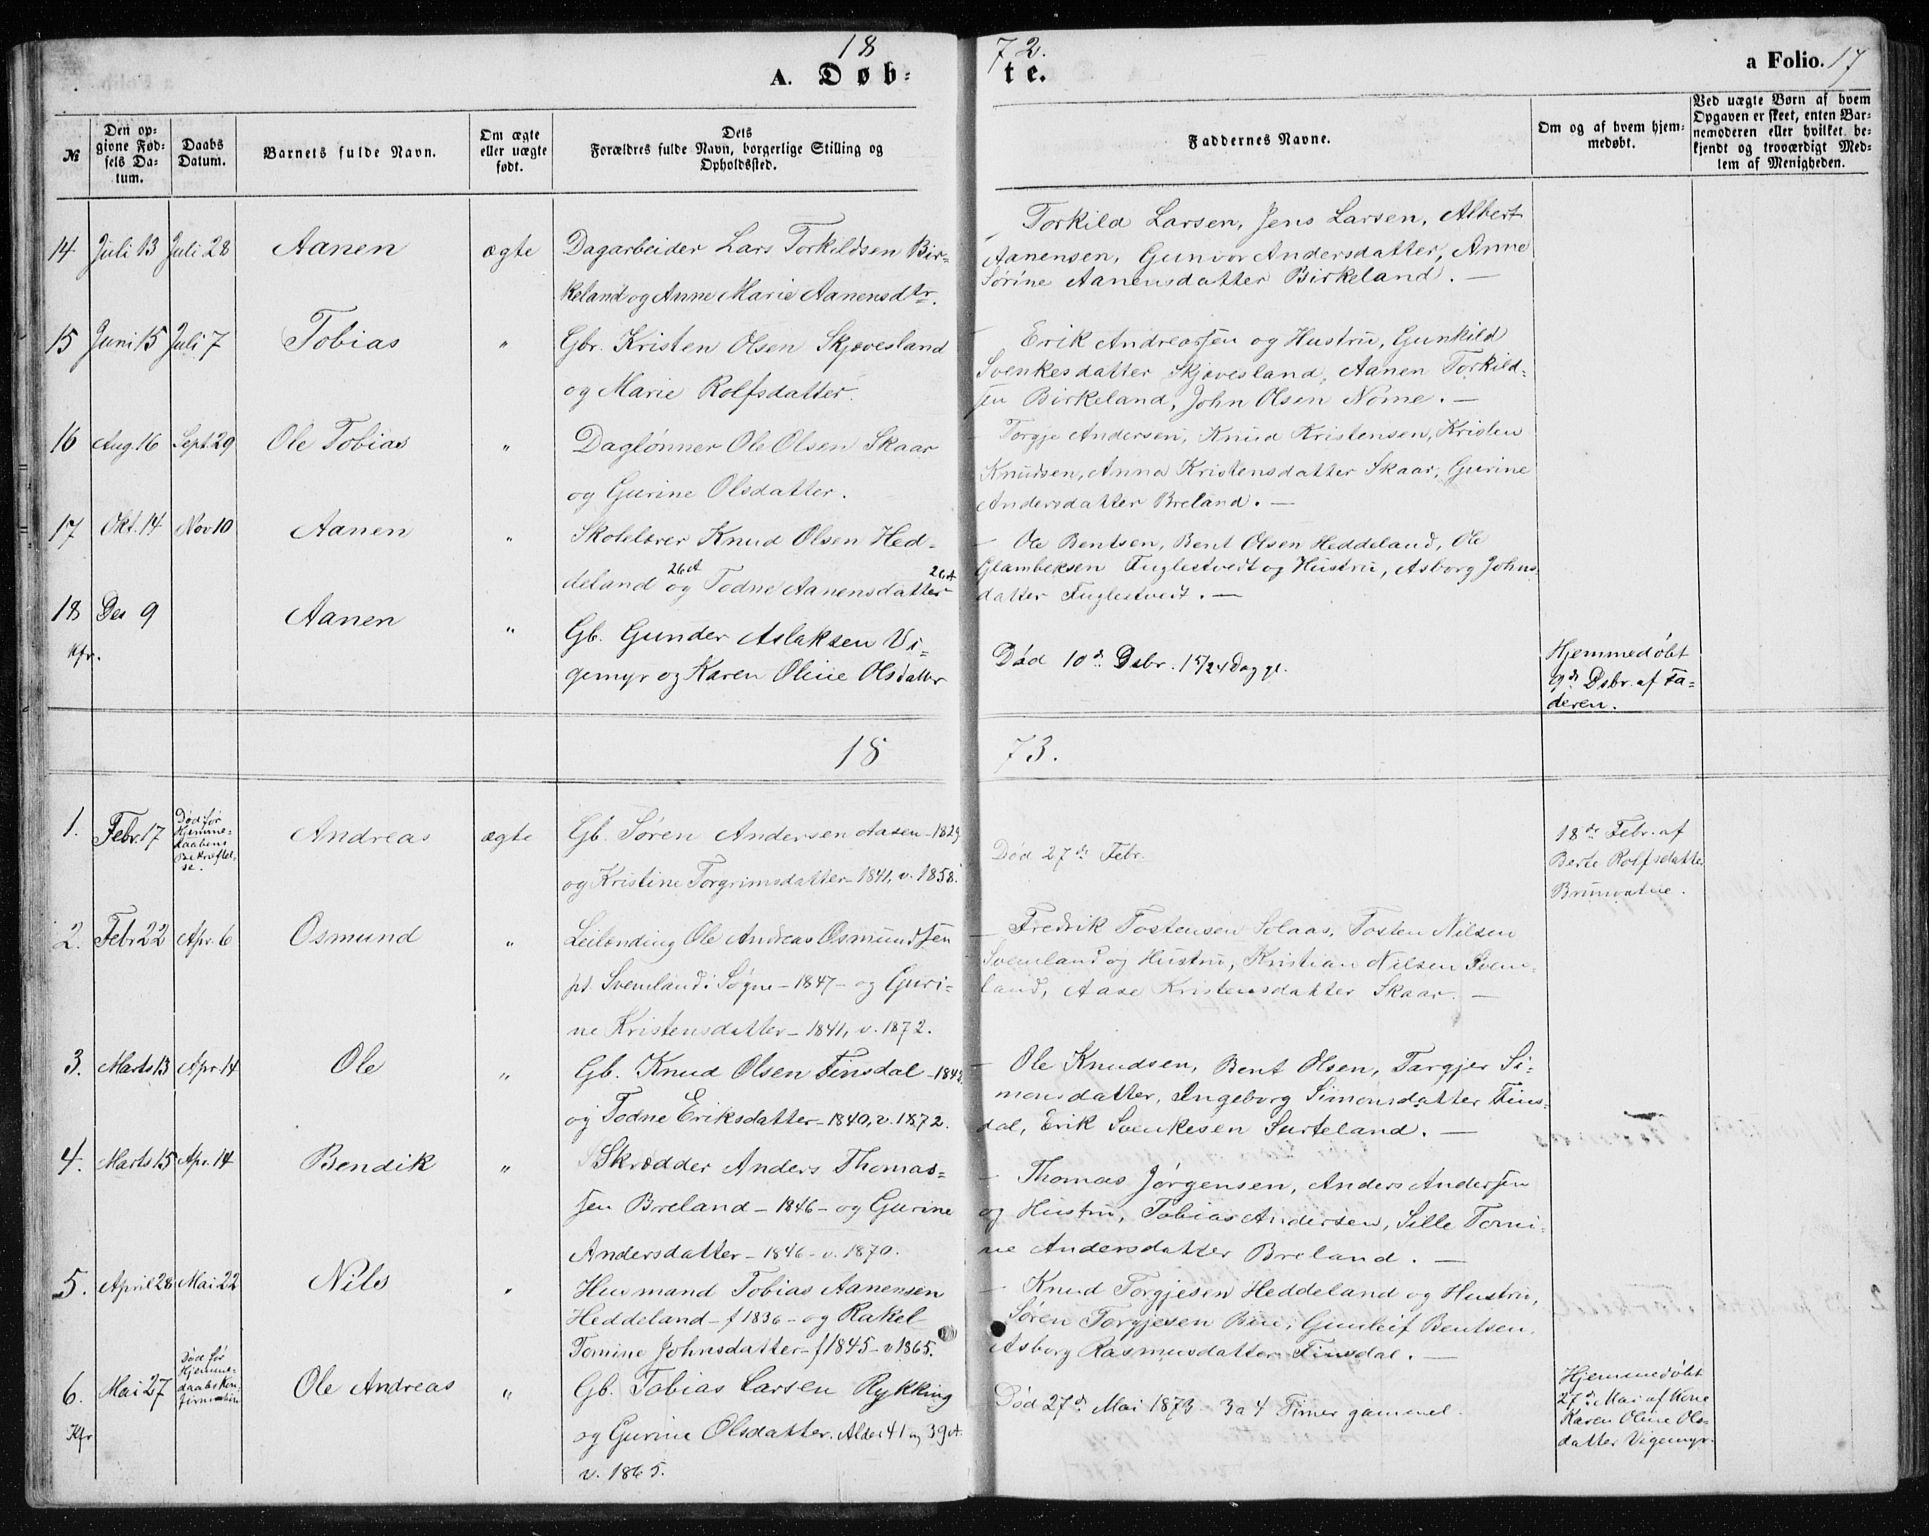 18 72.
A. Døb- te.
a Folio. 17
№
Den op-
givne Fød-
sels Da-
tum.
Daabs
Datum.
Barnets fulde Navn.
Om ægte
eller uægte
født.
Dets
Forældres fulde Navn, borgerlige Stilling og
Opholdssted.
Faddernes Navne.
Om og af hvem hjem-
medøbt.
Ved uægte Børn af hvem
Opgaven er skeet, enten Bar-
nemoderen eller hvilket be-
kjendt og troværdigt Med-
lem af Menigheden.
14 Juli 13 Juli 28 Aanen ægte Dagarbeider Lars Torkildsen Bir-
keland og Anne Marie Aanensdtr.
Torkild Larsen, Jens Larsen, Albert
Aanensen, Gunvor Andersdatter, Anne
Sørine Aanensdatter Birkeland. —
15 Juni 15 Juli 7 Tobias " Gbr. Kristen Olsen Skjævesland
og Marie Rolfsdatter.
— Erik Andreassen og Hustru, Gunhild
Svenkesdatter Skjævesland, Aanen Torkild-
sen Birkeland, John Olsen Nome. —
16 Aug. 16 Sept. 29 Ole Tobias " Daglønner Ole Olsen Skaar
og Gurine Olsdatter.
— Torgje Andersen, Knud Kristensen, Kristen
Knudsen, Anna Kristensdatter Skaar, Gurine
Andersdatter Breland. —
17 Okt. 14 Nov 10 Aanen " Skolelærer Knud Olsen Hed-
deland 26 A og Todne Aanensdatter 26 A
— Ole Bentsen, Bent Olsen Heddeland, Ole
Glambeksen Fuglestvedt og Hustru, Asborg Johns-
datter Fuglestvedt. —
18 Des 9 Aanen " Gb. Gunder Aslaksen Vi-
gemyr og Karen Oline Olsdatter
Kfr.
Død 10de Dsbr. 15/24 Dag gl.
Hjemmedøbt
9de Dsbr. af Fa-
deren.
18 73.
1. Febr. 17 Død før
Hjemme-
daabens
Bekræftel-
se.
Andreas ægte Gb. Søren Andersen Aasen - 1829
og Kristine Torgrimsdatter - 1841, v. 1858.
Død 27de Febr.
18de Febr. af
Berte Rolfsdatter
Brunvatne.
2. Febr 22 Apr. 6 Osmund " Leilending Ole Andreas Osmundsen
pd. Svemland i Søgne - 1847 - og Guri-
ne Kristensdatter - 1841, v. 1872.
— Fredrik Tostensen Solaas, Tosten Nilsen
Svemland og Hustru, Kristian Nilsen Svem-
land, Aase Kristensdatter Skaar. —
3. Marts 13 Apr. 14 Ole " Gb. Knud Olsen Finsdal - 1843
og Todne Eriksdatter - 1840, v. 1872.
— Ole Knudsen, Bent Olsen, Targjer Si-
monsdatter, Ingeborg Simonsdatter Fins-
dal, Erik Svenkesen Surteland. —
4. Marts 15 Apr. 14 Bendik " Skrædder Anders Thomas-
sen Breland - 1846 - og Gurine
Andersdatter - 1846 - v. 1870.
— Thomas Jørgensen, Anders Andersen
og Hustru, Tobias Andersen, Sille Tomi-
ne Andersdatter Breland. —
5. April 28 Mai 22 Nils " Husmand Tobias Aanensen
Heddeland - f 1836 - og Rakel
Tomine Johnsdatter - f 1845 - v 1865.
— Knud Torgjesen Heddeland og Hustru,
Søren Torgjesen Bue, Gunleif Bentsen,
Asborg Rasmusdatter Finsdal. —
6. Mai 27 Død før
Hjemme-
daabs Kon-
firmation
Ole Andreas " Gb. Tobias Larsen Rykking
og Gurine Olsdatter. Alder 41 og 39 A.
v. 1865.
Kfr
Død 27de Mai 1873 3 a 4 Timer gammel.
Hjemmedøbt
27de Mai af Kone
Karen Oline Ols-
datter Vigemyr.